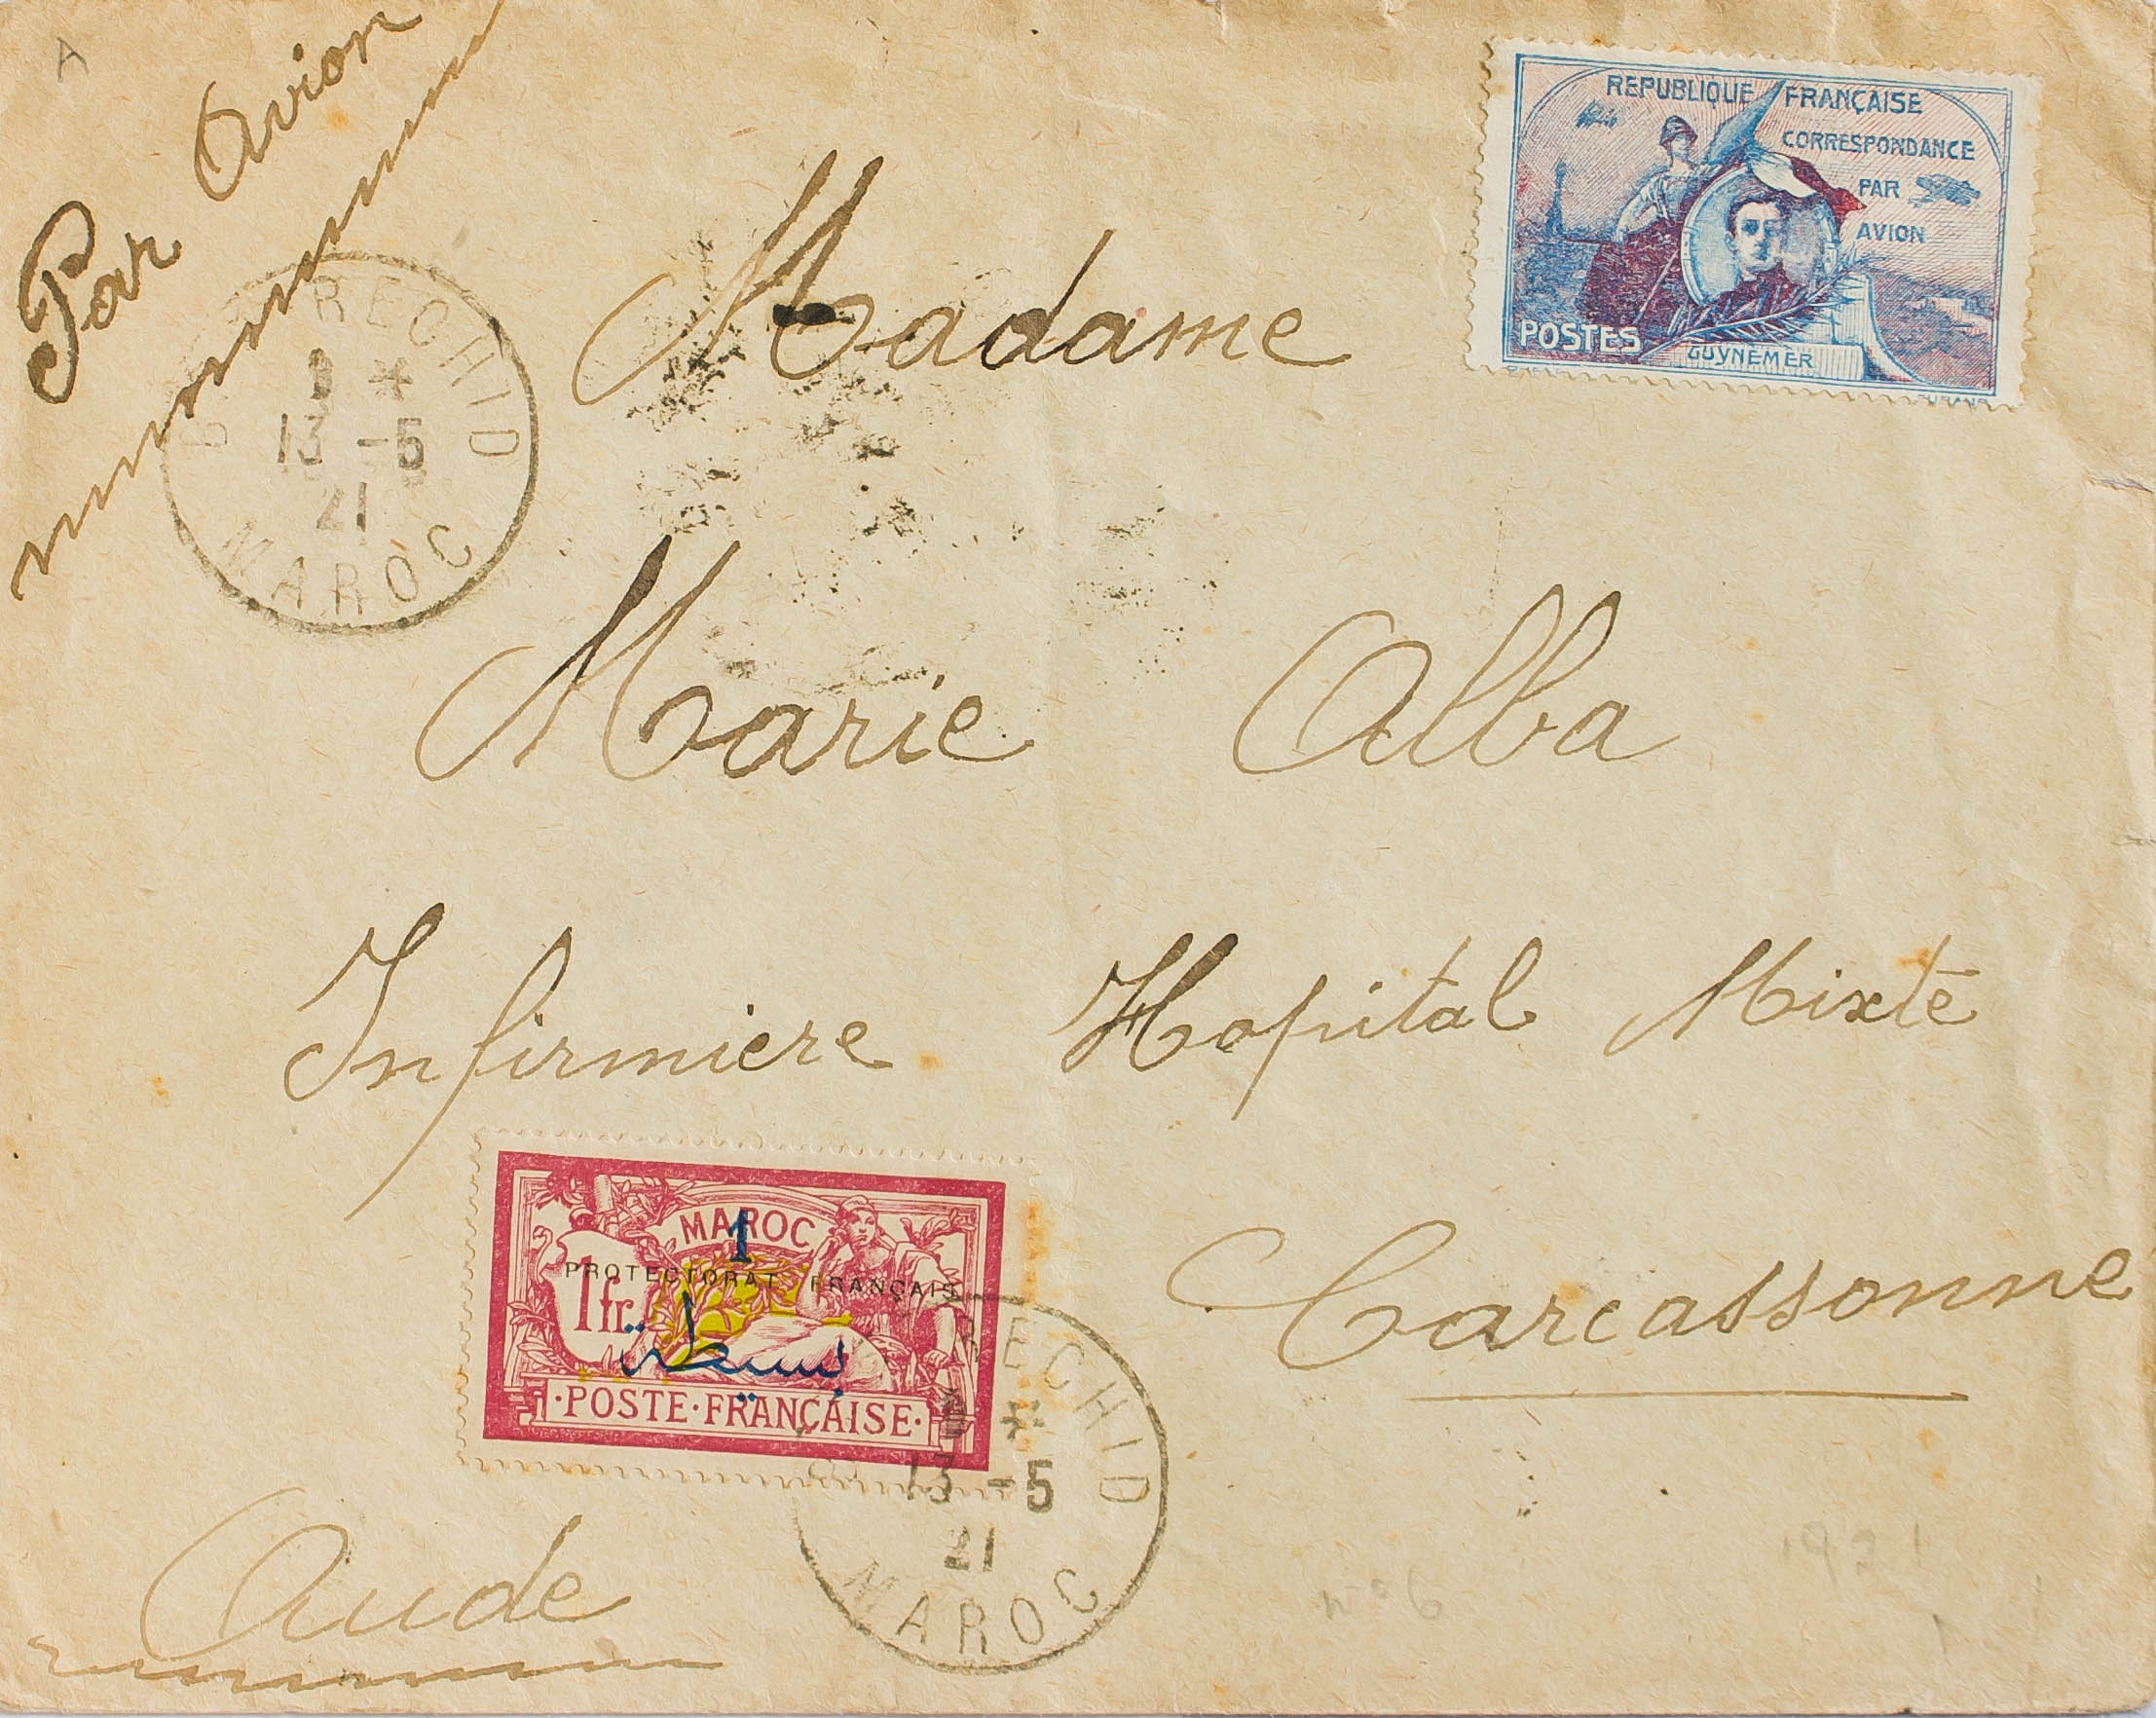 A
Par Avion
REPUBLIQUE FRANÇAISE
CORRESPONDANCE
PAR
AVION
POSTES
GUYNEMER
RECHID
13 -5
21
MAROC
Madame
Marie Alba
Infirmiere Hopital Mixte
Carcassonne
MAROC
1
PROTECTORAT FRANÇAIS
1fr.
بسيطة
·POSTE·FRANÇAISE·
RECHID
13 -5
21
MAROC
Aude
1921
N°6